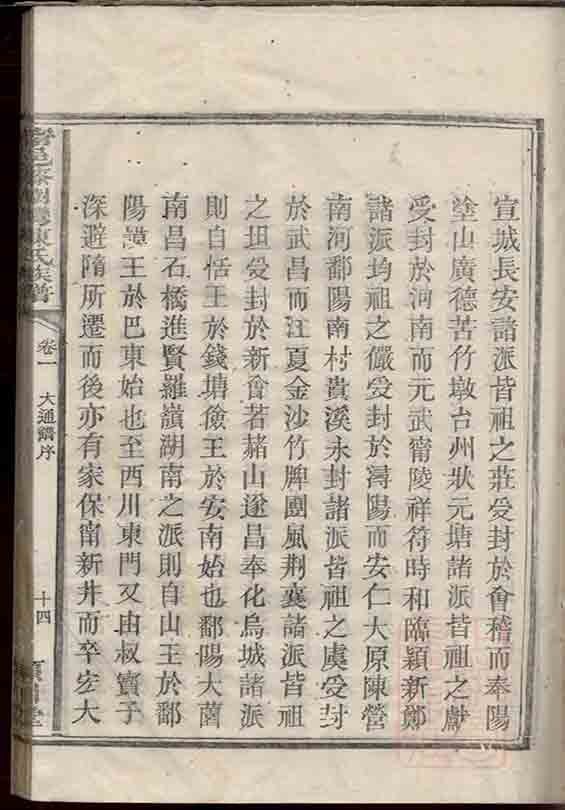 宣城長安諸派皆祖之莊受封於會稽而奉陽
塗山廣德苦竹墩台州狀元塘諸派皆祖之獻
受封於河南而元武甯陵祥符時和臨穎新鄭
諸派均祖之儼受封於潯陽而安仁大原陳營
南河鄱陽南村貴溪永封諸派皆祖之虞受封
於武昌而江夏金沙竹牌團風荆襄諸派皆祖
之坦受封於新會若赭山遂昌奉化烏城諸派
則自恬王於錢塘儉王於安南始也鄱陽大菌
南昌石橋進賢羅嶺湖南之派則自山王於鄱
陽王於巴東始也至西川東門又由叔寶子
深避隋所遷而後亦有家保甯新井而卒宏大
陳氏族譜
卷一
大通譜序
十四
堂